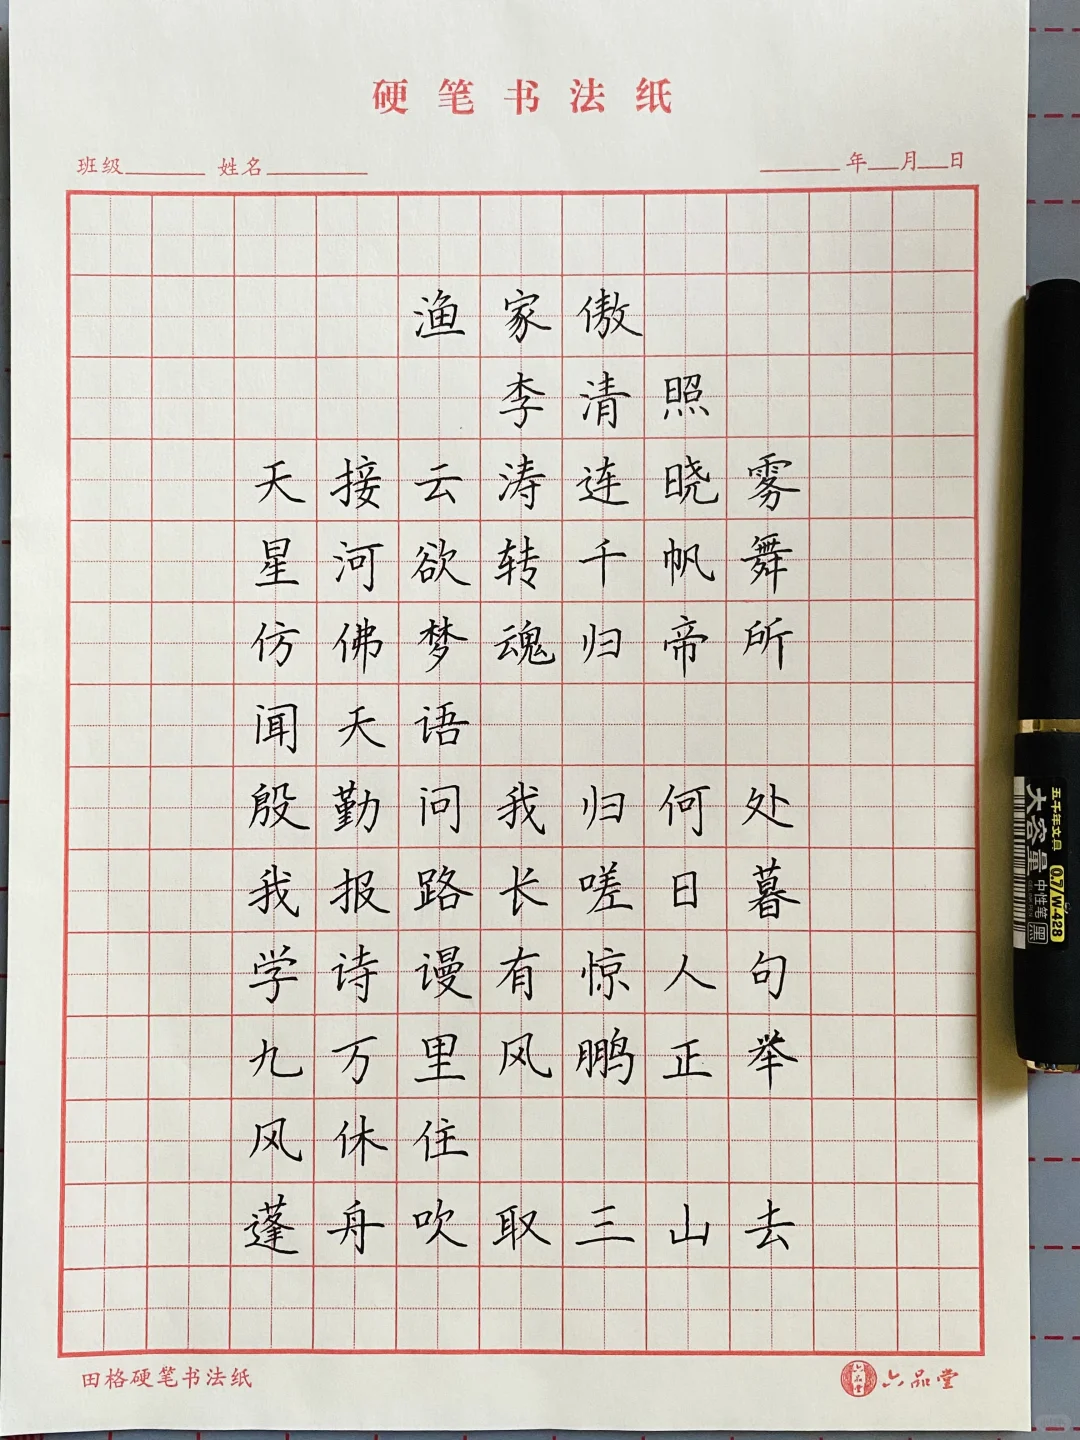 硬笔书法纸
班级 姓名 年 月 日
渔家傲
李清照
天接云涛连晓雾
星河欲转千帆舞
仿佛梦魂归帝所
闻天语
殷勤问我归何处
我报路长嗟日暮
学诗谩有惊人句
九万里风鹏正举
风休住
蓬舟吹取三山去
田格硬笔书法纸
六品堂 六品堂
五千年文具
大容量
0.7/W-428
中性笔 黑